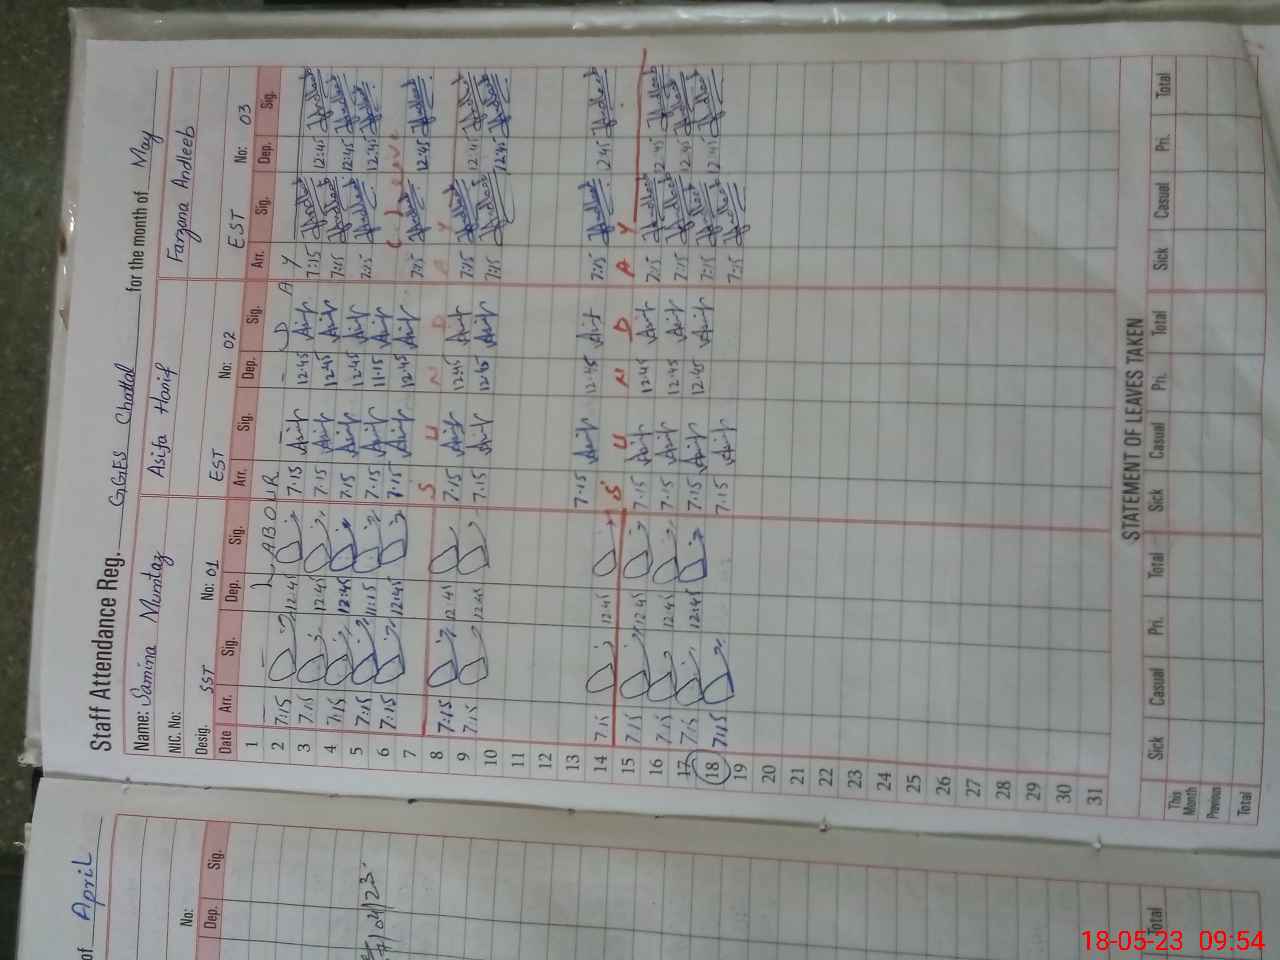 Staff Attendance Reg. GGES Chattal for the month of May
Name: Samina Mumtaz Asifa Hanif Farzana Andleeb
NIC. No:
Desig. SST No: 01 EST No: 02 EST No: 03
Date Arr. Sig. Dep. Sig. Arr. Sig. Dep. Sig. Arr. Sig. Dep. Sig.
1 LABOUR DAY
2 7:15 12:45 7:15 12:45 7:15 12:45
3 7:15 12:45 7:15 12:45 7:15 12:45
4 7:15 12:45 7:15 12:45 7:15 12:45
5 7:15 11:15 7:15 11:15 C. Leave
6 7:15 12:45 7:15 12:45 7:15 12:45
7 SUNDAY
8 7:15 12:45 7:15 12:45 7:15 12:45
9 7:15 12:45 7:15 12:45 7:15 12:45
10
11
12
13 7:15 12:45 7:15 12:45 7:15 12:45
14 SUNDAY
15 7:15 12:45 7:15 12:45 7:15 12:45
16 7:15 12:45 7:15 12:45 7:15 12:45
17 7:15 12:45 7:15 12:45 7:15 12:45
18 7:15 7:15 7:15
19
20
21
22
23
24
25
26
27
28
29
30
31
STATEMENT OF LEAVES TAKEN
Sick Casual Pri. Total Sick Casual Pri. Total Sick Casual Pri. Total
This Month
Previous
Total
of April
No:
Dep. Sig.
Total
18-05-23 09:54